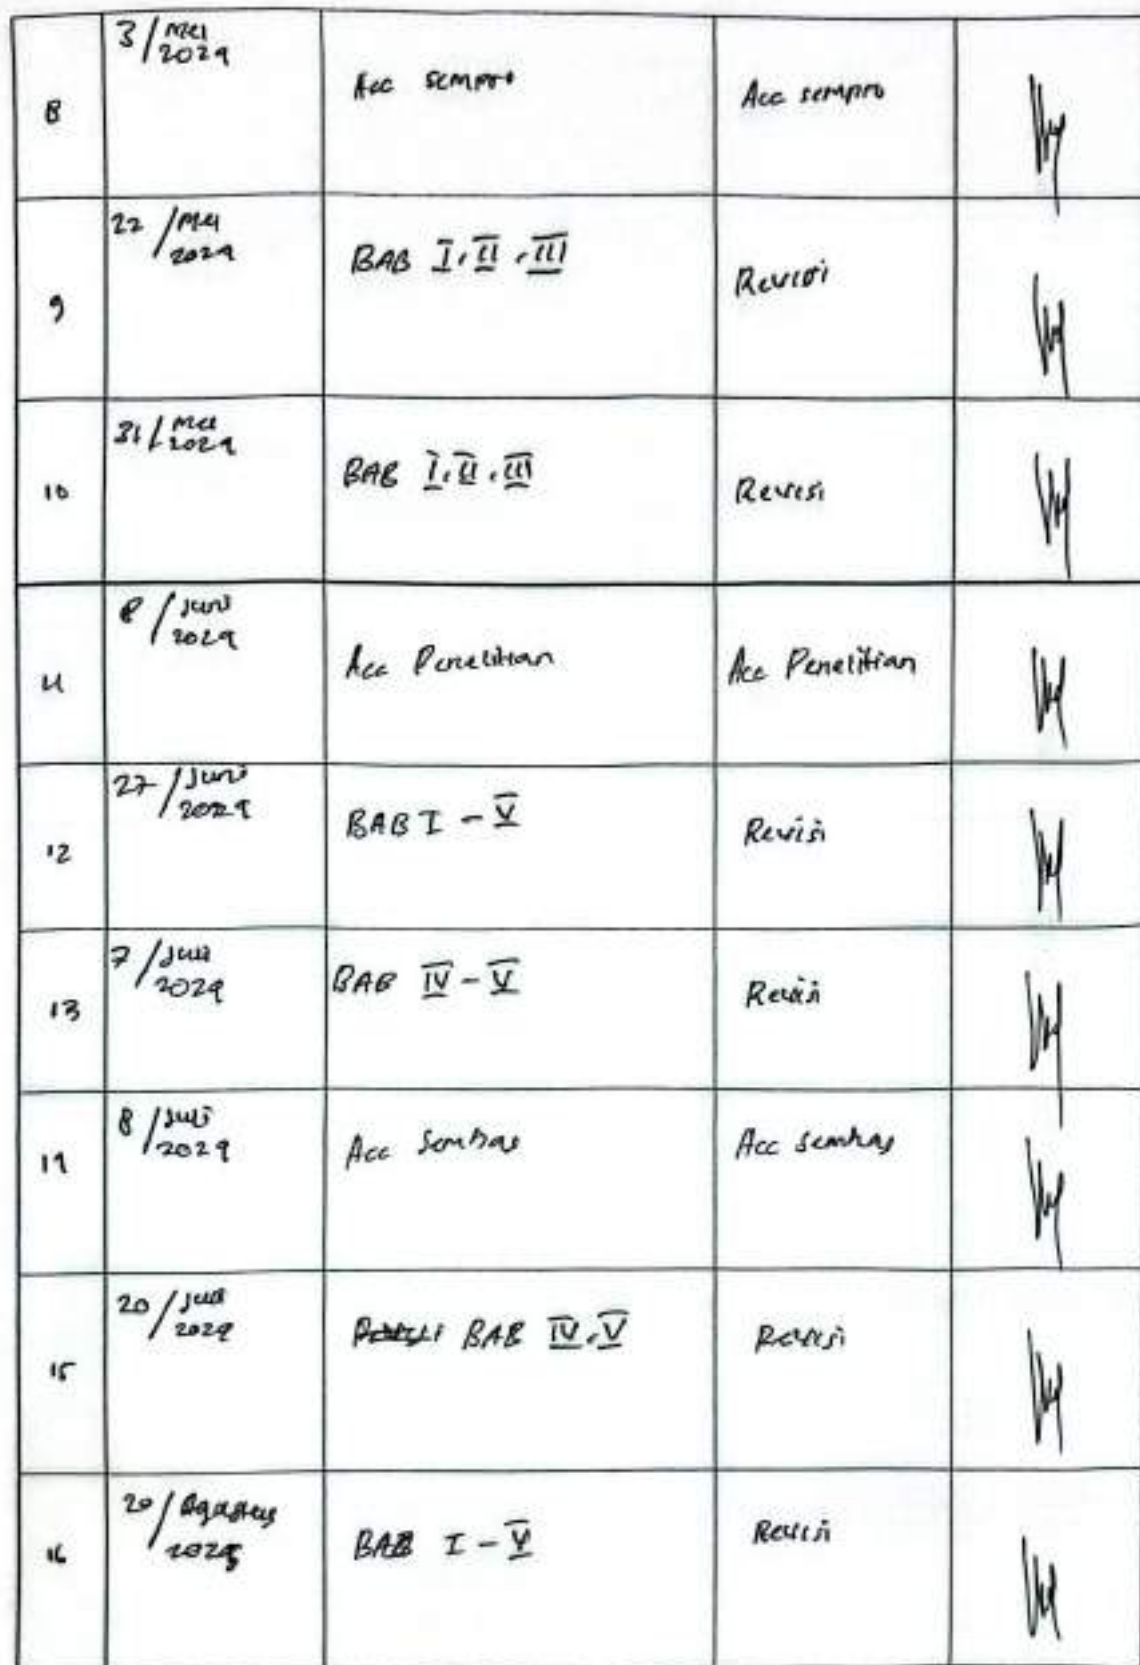 8
3 / Mei
2024
Acc sempro
Acc sempro
9
22 / Mei
2024
BAB I, II, III
Revisi
10
31 / Mei
2024
BAB I, II, III
Revisi
11
8 / Juni
2024
Acc Penelitian
Acc Penelitian
12
27 / Juni
2024
BAB I - V
Revisi
13
7 / Juli
2024
BAB IV - V
Revisi
14
8 / Juli
2024
Acc Semhas
Acc semhas
15
20 / Juli
2024
BAB IV, V
Revisi
16
20 / Agustus
BAB I - V
Revisi